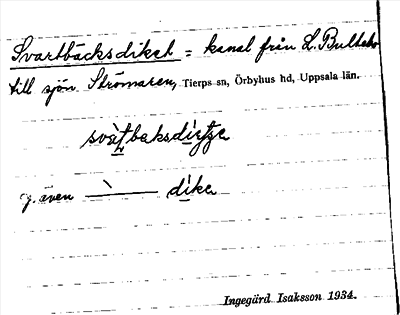 Svartbäcksdiket = kanal från L. Bultebo
till sjön Strömaren, Tierps sn, Örbyhus hd, Uppsala län.
även dike
Ingegärd Isaksson 1934.